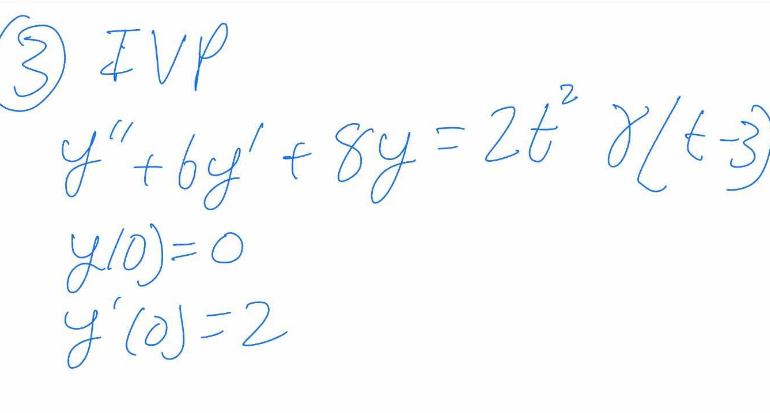 ③ IVP
y'' + 6y' + 8y = 2t² γ(t-3)
y(0) = 0
y'(0) = 2